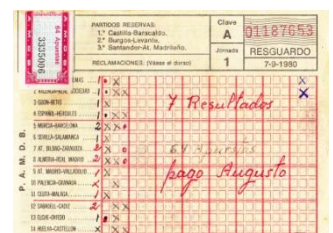 64 Apuestas
3335006
PARTIDOS RESERVAS:
1.º Castilla-Baracaldo.
2.º Burgos-Levante.
3.º Santander-At. Madrileño.
RECLAMACIONES: (Véase al dorso)
Clave
A
Jornada
1
01187653
RESGUARDO
7-9-1980
P. A. M. D. B.
SOCIEDAD
2 GIJON-BETIS
4 ESPAÑOL-HERCULES
5 MURCIA-BARCELONA
6 SEVILLA-SALAMANCA
7 AT. BILBAO-ZARAGOZA
8 ALMERIA-REAL MADRID
9 AT. MADRID-VALLADOLID
10 PALENCIA-GRANADA
11 CEUTA-MALAGA
12 SABADELL-CADIZ
13 ELCHE-OVIEDO
14 HUELVA-CASTELLON
7 Resultados
64 Apuestas
pago Augusto